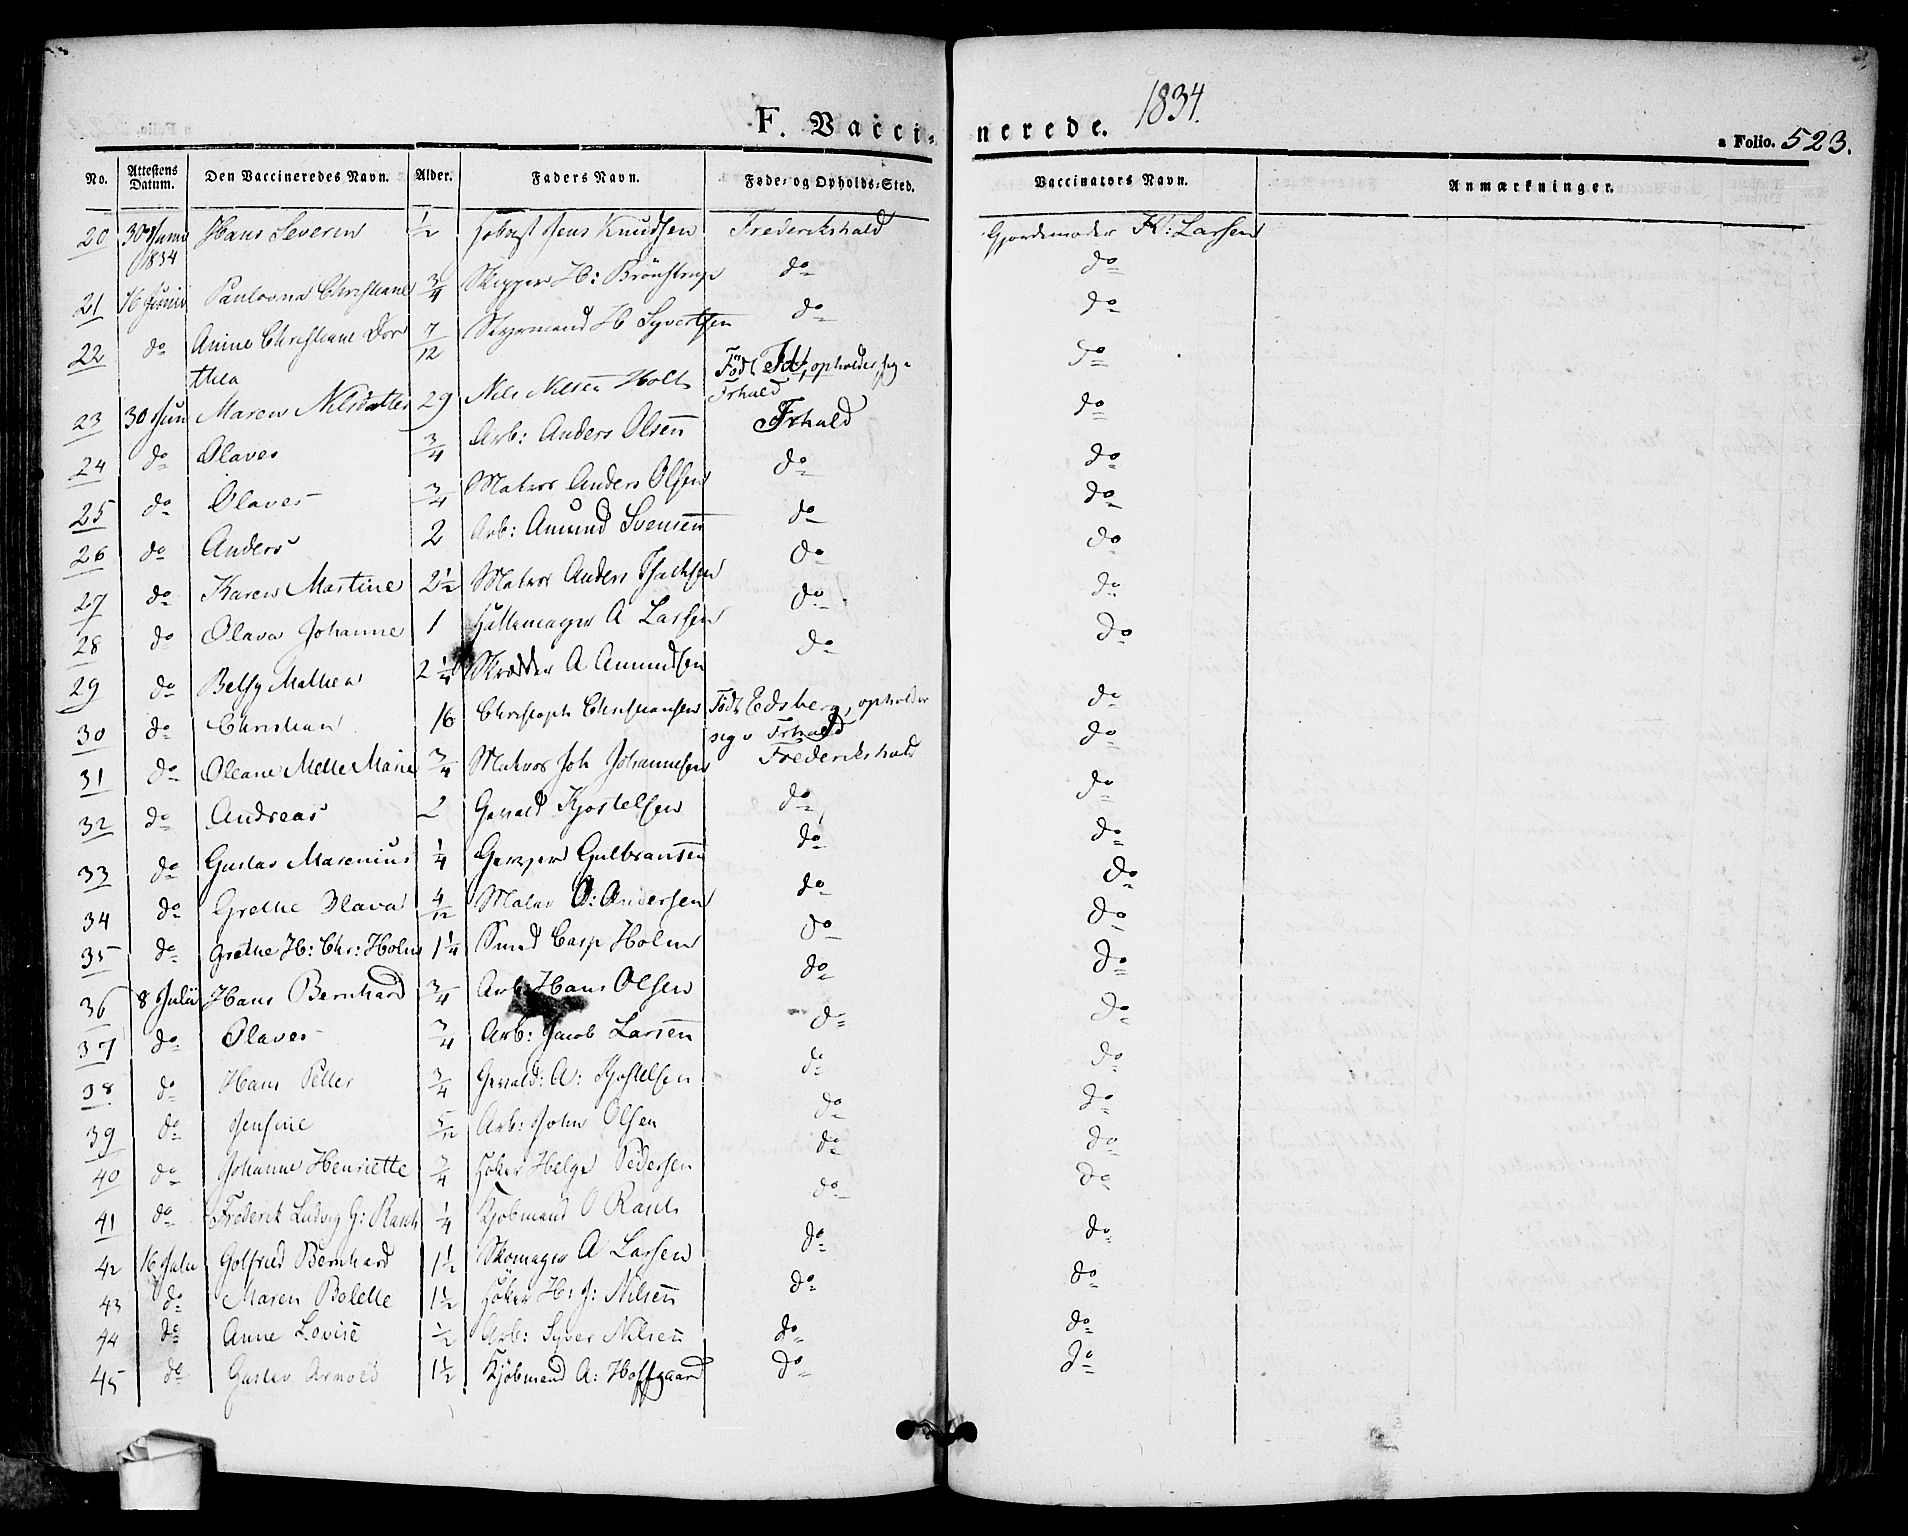 1834.
F. Vaccinerede.
a Folio. 523.
No. Attestens Datum. Den Vaccineredes Navn. Alder. Faders Navn. Føde- og Opholds-Sted. Vaccinators Navn. Anmærkninger.
20 30 Juni 1834 Hans Severin 1/2 Jens Knudsen Frederikshald Gjordemoder K: Larsen
21 16 Junii Paulovna Christiane 3/4 Skipper H: Brönstrup do do
22 do Anine Christiane Dorthea 7/12 Styrmand H Syvertsen do do
23 30 Jun Maren Nilsdatter 29 Nils Nilsen Holt Födt Id, opholder sig i Frhald do
24 do Olaves 3/4 Arb: Anders Olsen Frhald do
25 do Olaves 3/4 Matros Anders Olsen do do
26 do Anders 2 Arb: Amund Svensen do do
27 do Karen Martine 2 1/2 Matros Anders Isachsen do do
28 do Olava Johanne 1 Hattemager A Larsen do do
29 do Betsy Mathea 2 1/4 Skrædder A Amundsen do do
30 do Christian 16 Christoph Christiansen Födt Edsberg, opholder sig i Frhald do
31 do Oleane Mette Marie 3/4 Matros Joh Johannesen Frederikshald do
32 do Andreas 2 Gevald Kjostelsen do do
33 do Gustav Marenius 1/4 Gulbransen do do
34 do Grethe Olava 4/12 Maler O: Andersen do do
35 do Grethe H: Chr: Holm 1 1/4 Smed Casp Holm do do
36 8 Julii Hans Bernhard 3/4 Arb: Hans Olsen do do
37 do Olaves 3/4 Arb: Jacob Larsen do do
38 do Hans Petter 3/4 Gevald: A: Kjostelsen do do
39 do Jensine 5/12 Arb: John Olsen do do
40 do Johanne Henriette 3/4 Höker Helge Pedersen do do
41 do Frederik Ludvig G: Rasch 1/4 Kjöbmand O Rasch do do
42 16 Julii Gotfried Bernhard 1 1/2 Skomager A Larsen do do
43 do Maren Bolette 1 1/2 Höker H: J: Nilsen do do
44 do Anne Lovise 1/2 Arb: Syver Nilsen do do
45 do Gustav Arnold 1 1/2 Kjöbmand A: Hoffgaard do do